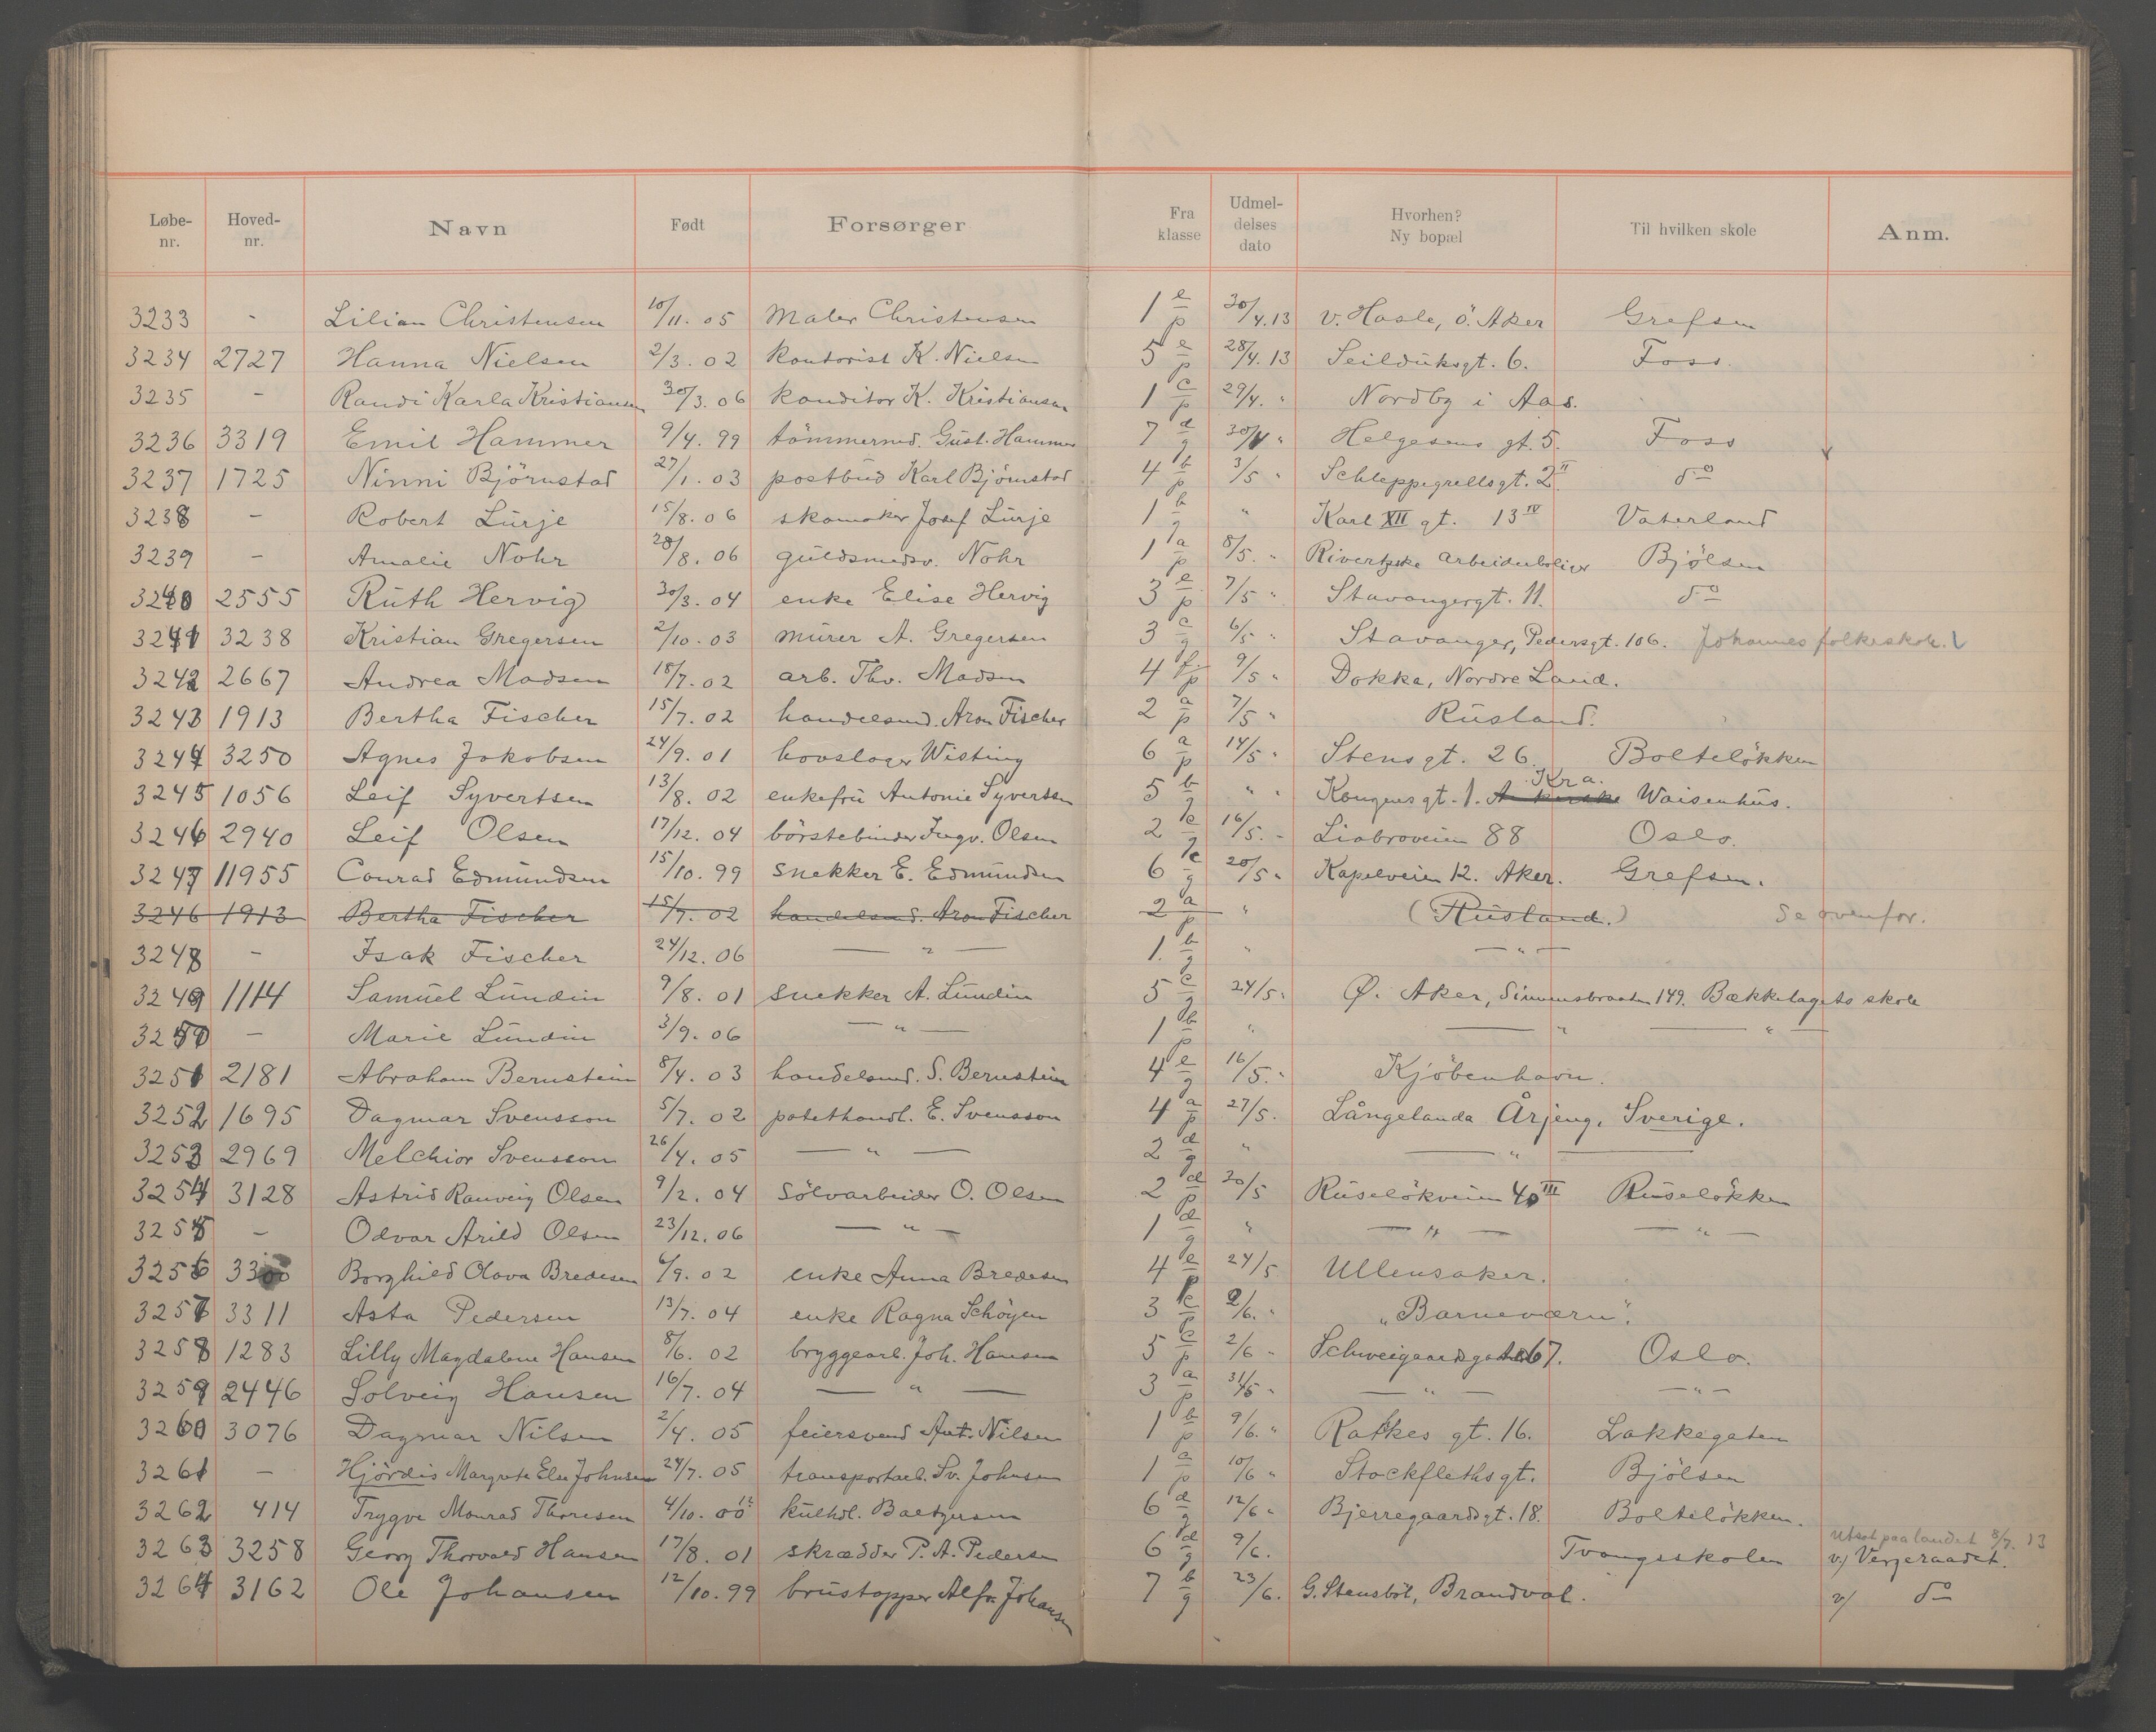 Løbe-nr. Hoved-nr. Navn Født Forsørger Fra klasse Udmel-delses dato Hvorhen? Ny bopæl Til hvilken skole Anm.
3233 - Lilian Christensen 10/11. 05 Maler Christensen 1 e/p 30/4.13 v. Hasle, ö. Aker Grefsen
3234 2727 Hanna Nielsen 2/3. 02 kontorist K. Nielsen 5 e/p 28/4.13 Seilduksgt. 6. Foss.
3235 - Randi Karla Kristiansen 30/3. 06 konditor K. Kristiansen 1 c/p 29/4. " Nordby i Aas.
3236 3319 Emil Hammer 9/4. 99 tömmermd. Gust. Hammer 7 d/g 30/4 " Helgesens gt. 5. Foss
3237 1725 Ninni Björnstad 27/1. 03 postbud Karl Björnstad 4 b/p 3/5 " Schleppegrellsgt. 2 II do
3238 - Robert Lurje 15/8. 06 skomaker Josef Lurje 1 b/g " Karl XII gt. 13 IV Vaterland
3239 - Amalie Nohr 28/8. 06 guldsmedsv. Nohr 1 a/p 8/5. " Rivertzske arbeiderboliger Bjölsen
3240 2555 Ruth Hervig 30/3. 04 enke Elise Hervig 3 e/p 7/5 " Stavangergt. 11. do
3241 3238 Kristian Gregersen 2/10. 03 murer A. Gregersen 3 c/g 6/5 " Stavanger, Pedersgt. 106. Johannes folkeskole.
3242 2667 Andrea Madsen 18/7. 02 arb. Thv. Madsen 4 f/p 9/5 " Dokka, Nordre Land.
3243 1913 Bertha Fischer 15/7. 02 handelsmd. Aron Fischer 2 a/p 7/5 " Rusland.
3244 3250 Agnes Jakobsen 24/9. 01 hovslager Wisting 6 a/p 14/5 " Stensgt. 26. Bolteløkken
3245 1056 Leif Syvertsen 13/8. 02 enkefru Antonie Syvertsen 5 b/g " " Kongens gt. 1. Ankerske Kra. Waisenhus.
3246 2940 Leif Olsen 17/12. 04 börstebinder Ingv. Olsen 2 c/g 16/5. " Liabroveien 88 Oslo.
3247 11955 Conrad Edmundsen 15/10. 99 snekker E. Edmundsen 6 c/g 20/5 " Kapelveien 12. Aker. Grefsen.
3246 1913 Bertha Fischer 15/7. 02 handelsmd. Aron Fischer 2 a/p " (Rusland.) Se ovenfor.
3248 - Isak Fischer 24/12. 06 — " — 1. b/g " — " —
3249 1114 Samuel Lundin 9/8. 01 snekker A. Lundin 5 c/g 24/5. Ø. Aker, Simensbraaten 149. Bækkelagets skole
3250 - Marie Lundin 3/9. 06 — " — 1 b/p " — " — — " —
3251 2181 Abraham Bernstein 8/4. 03 handelsmd. S. Bernstein 4 e/g 16/5. " Kjöbenhavn.
3252 1695 Dagmar Svensson 5/7. 02 potethandl. E. Svensson 4 a/p 27/5. Långelanda Årjeng, Sverige.
3253 2969 Melchior Svensson 26/4. 05 — " — 2 d/g " — " —
3254 3128 Astrid Ranveig Olsen 9/2. 04 sölvarbeider O. Olsen 2 d/p 20/5 Ruselökveien 40 III Ruselökken
3255 - Odvar Arild Olsen 23/12. 06 — " — 1 d/g " — " — — " —
3256 3300 Borghild Olava Bredesen 6/9. 02 enke Anna Bredesen 4 e/p 24/5 Ullensaker.
3257 3311 Asta Pedersen 13/7. 04 enke Ragna Schöyen 3 c/p 2/6. " "Barneværn".
3258 1283 Lilly Magdalene Hansen 8/6. 02 bryggearb. Joh. Hansen 5 c/p 2/6 " Schweigaardsgade 67. Oslo.
3259 2446 Solveig Hansen 16/7. 04 — " — 3 a/p 31/5 " — " — — " —
3260 3076 Dagmar Nilsen 2/4. 05 feiersvend Ant. Nilsen 1 b/p 9/6. " Ratkes gt. 16. Lakkegaten
3261 - Hjördis Margrete Else Johnsen 24/7. 05 transportarb. Sv. Johnsen 1 a/p 10/6 " Stockflethsgt. Bjölsen
3262 414 Trygve Monrad Thoresen 4/10. 00 kulhdl. Baetzersen 6 d/g 12/6 " Bjerregaardsgt. 18. Bolteløkken.
3263 3258 Georg Thorvald Hansen 17/8. 01 skrædder P. A. Pedersen 6 d/g 9/6. Tvangsskolen Utsat paa landet 8/7. 13 v/ Vergeraadet.
3264 3162 Ole Johansen 12/10. 99 brustopper Alfr. Johansen 7 b/g 23/6. G. Stensböl, Brandval. v/ do